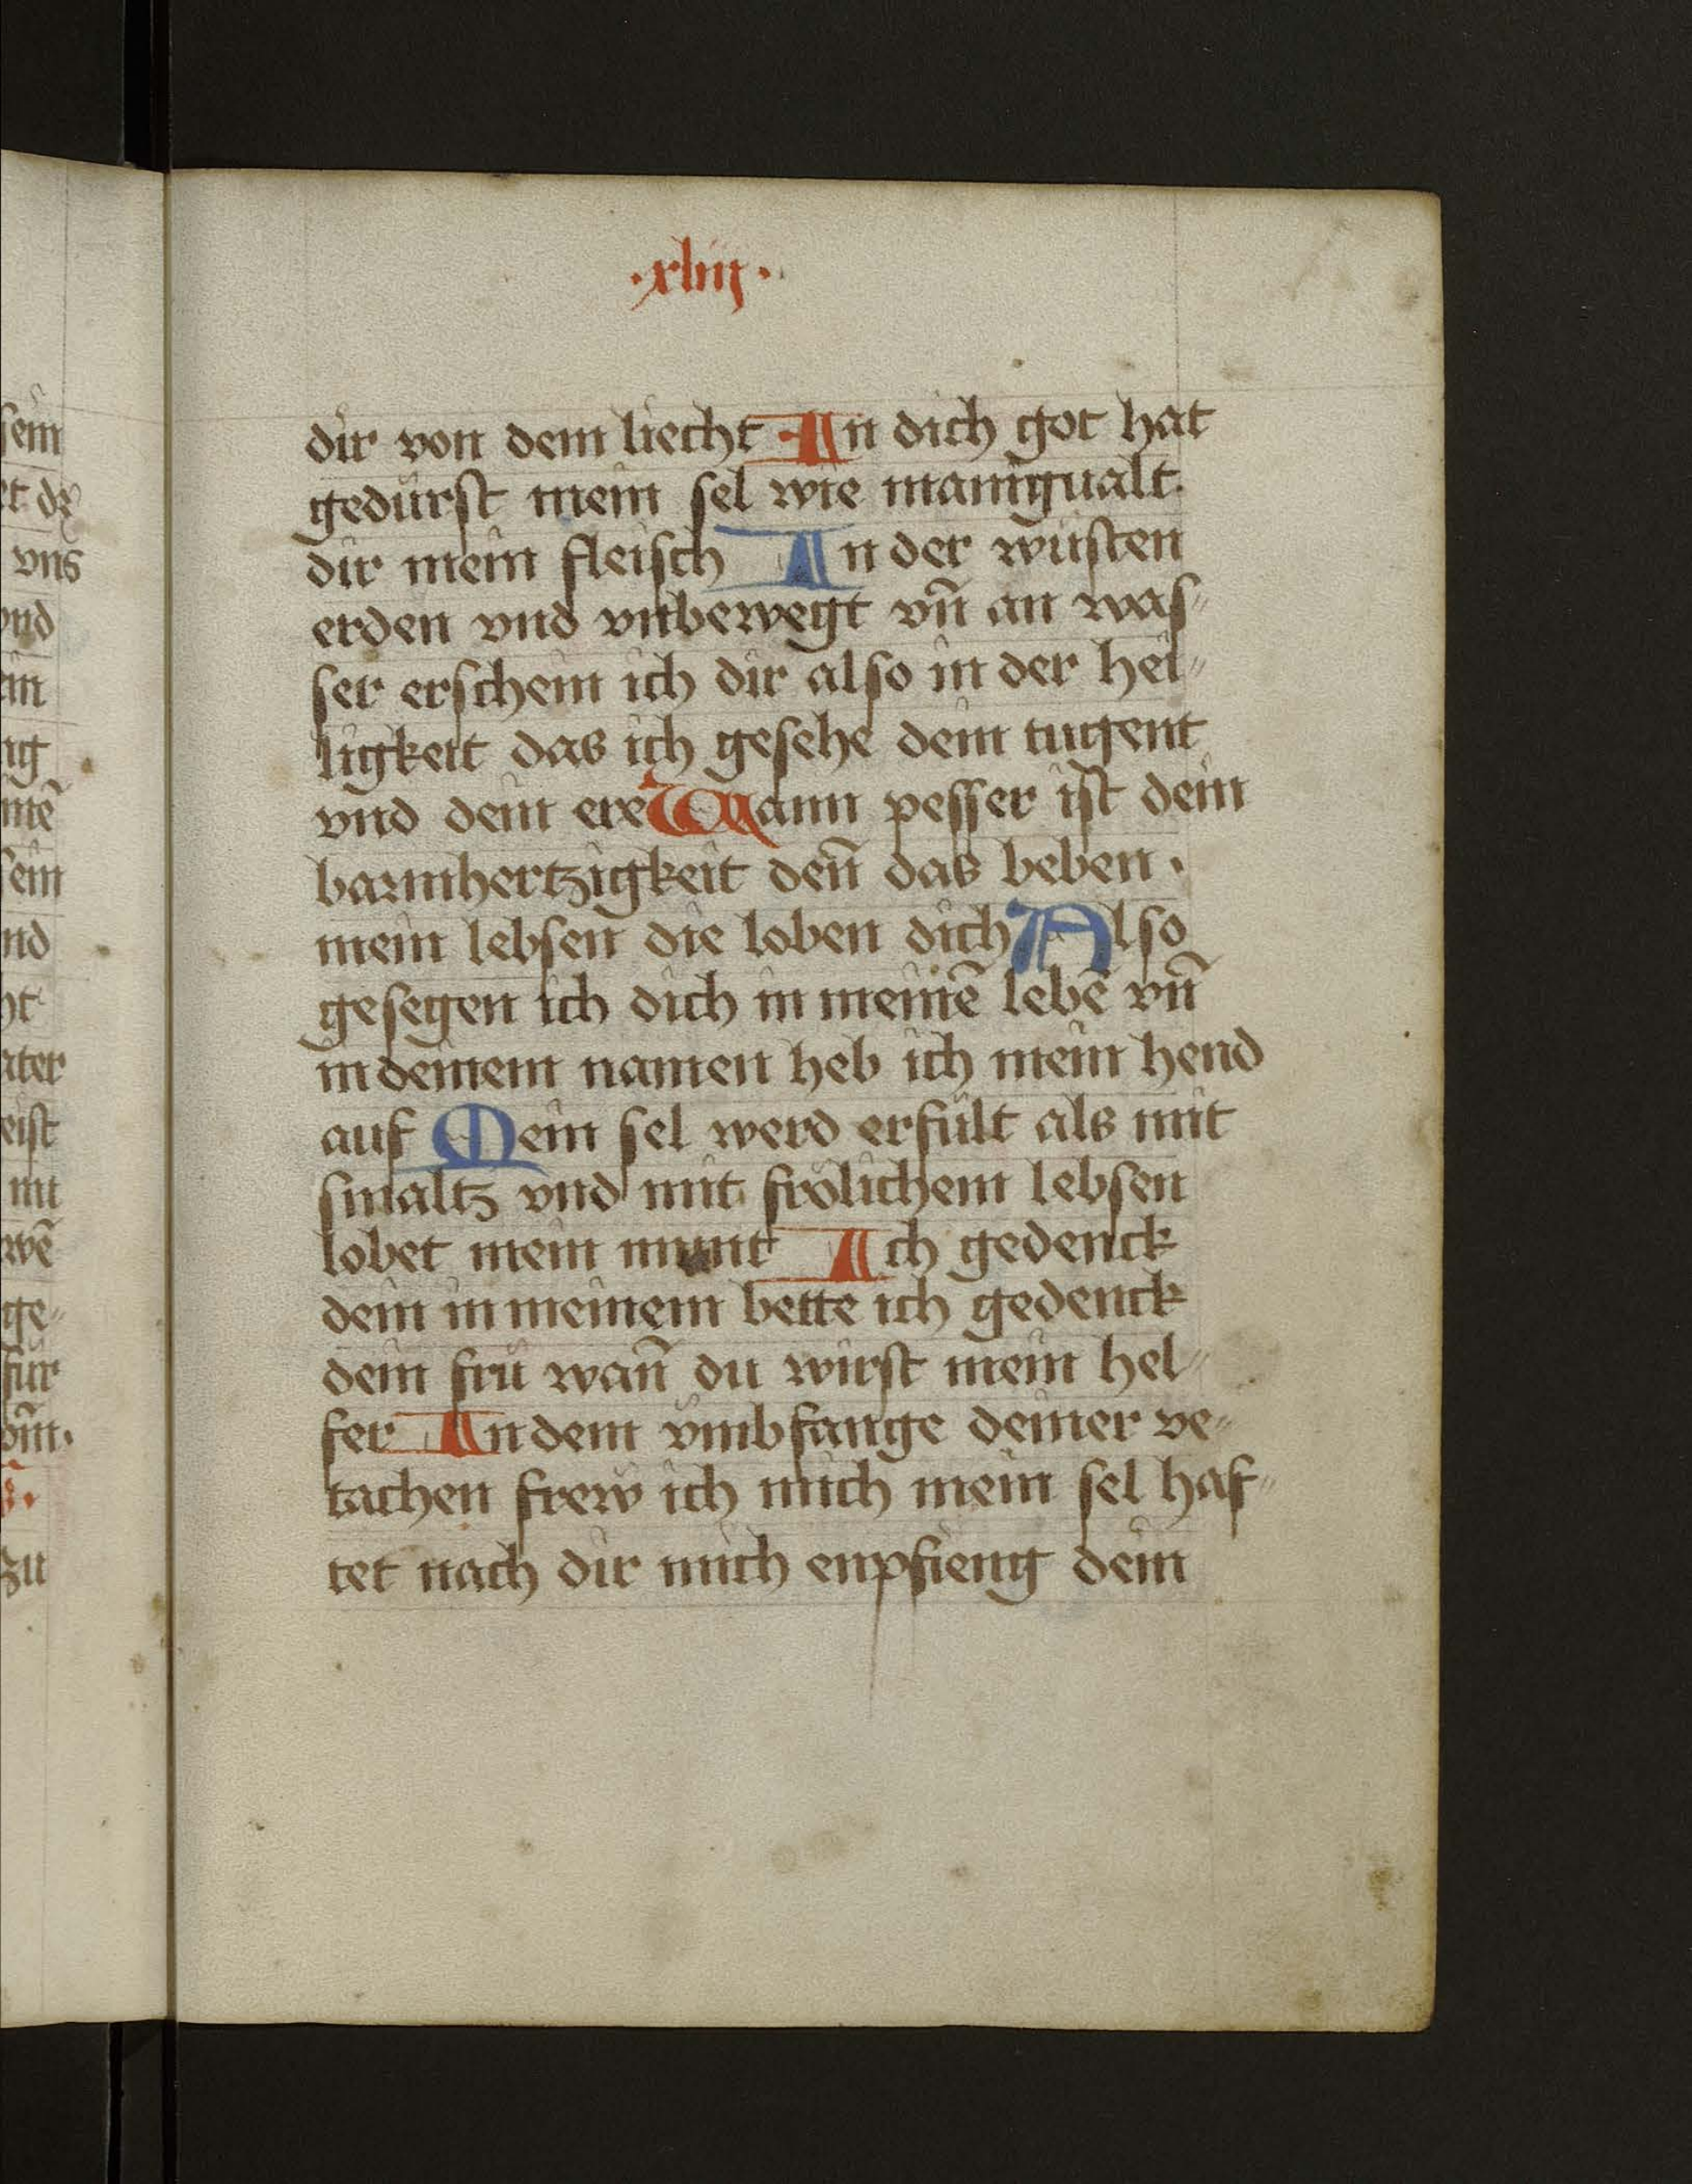 ·xliij·
dir von dem liecht In dich got hat
gedurst mein sel wie manigualt
dir mein fleisch In der wüsten
erden vnd vnbewegt vn̄ an was〃
ser erschein ich dir also in der hei〃
ligkeit das ich gesehe dein tugent
vnd dein ere Wann pesser ist dein
barmhertzigkeit den̄ das beben ·
mein lebsen die loben dich Also
gesegen ich dich in meinē lebē vn̄
in deinem namen heb ich mein hend
auf Mein sel werd erfült als mit
smaltz vnd mit frölichem lebsen
lobet mein munt Ich gedenck
dein in meinem bette ich gedenck
dein frü wan̄ du wirst mein hel〃
fer In dem vmbfange deiner ve〃
tachen frew ich mich mein sel haf〃
tet nach dir mich enpfieng dein